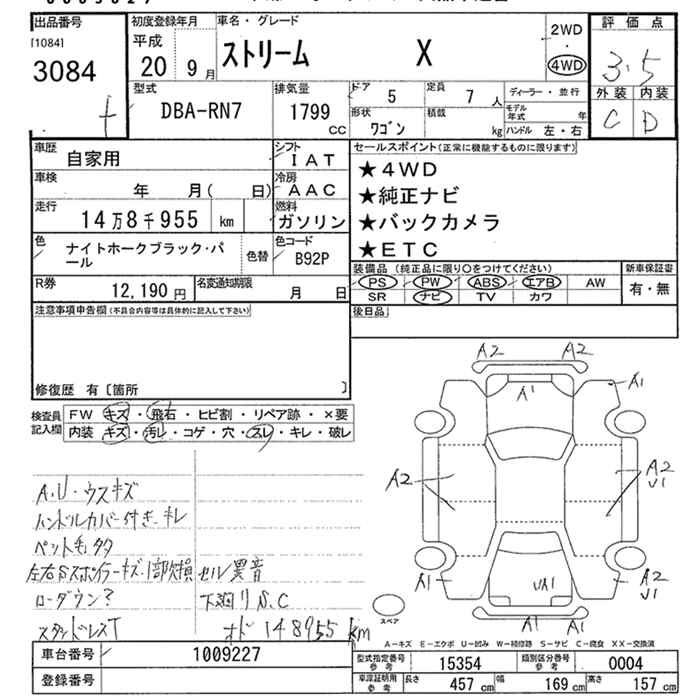 出品番号 初度登録年月 車名・グレード 2WD・4WD 評価点
[1084] 平成
3084 20 9月 ストリーム X 3.5
外装 内装
C D
型式 DBA-RN7 排気量 1799 CC
ドア 5 定員 7人 ディーラー・並行
形状 ワゴン 積載 kg モデル年式 年 ハンドル 左・右
車歴 自家用 シフト IAT
車検 年 月( 日) 冷房 AAC
走行 14万8千955 km 燃料 ガソリン
色 ナイトホークブラック・パール 色替 色コード B92P
R券 12,190円 名変通知期限 月 日
セールスポイント(正常に機能するものに限ります)
★4WD
★純正ナビ
★バックカメラ
★ETC
装備品 (純正品に限り○をつけてください) 新車保証書
PS PW ABS エアB AW 有・無
SR ナビ TV カワ
注意事項申告欄(不具合内容等は具体的に記入して下さい) 後日品
修復歴 有〔箇所 〕
検査員記入欄 FW キズ・飛石・ヒビ割・リペア跡・×要
内装 キズ・汚レ・コゲ・穴・スレ・キレ・破レ
A.U・ウスキズ
ハンドルカバー付き・キレ
ペット毛
左右Sスポイラーキズ・1部欠損 セル異音
ローダウン? 下廻りS.C
オド 148955km
A2 A2
A1 A1
A2 A2
U1
A1 UA1 A2
U1
A1 A1
スペア
A-キズ E-エクボ U-凹み W-補修跡 S-サビ C-腐食 XX-交換済
車台番号 1009227 型式指定番号 参考 15354 類別区分番号 参考 0004
登録番号 車庫証明用 参考 長さ 457cm 幅 169cm 高さ 157cm